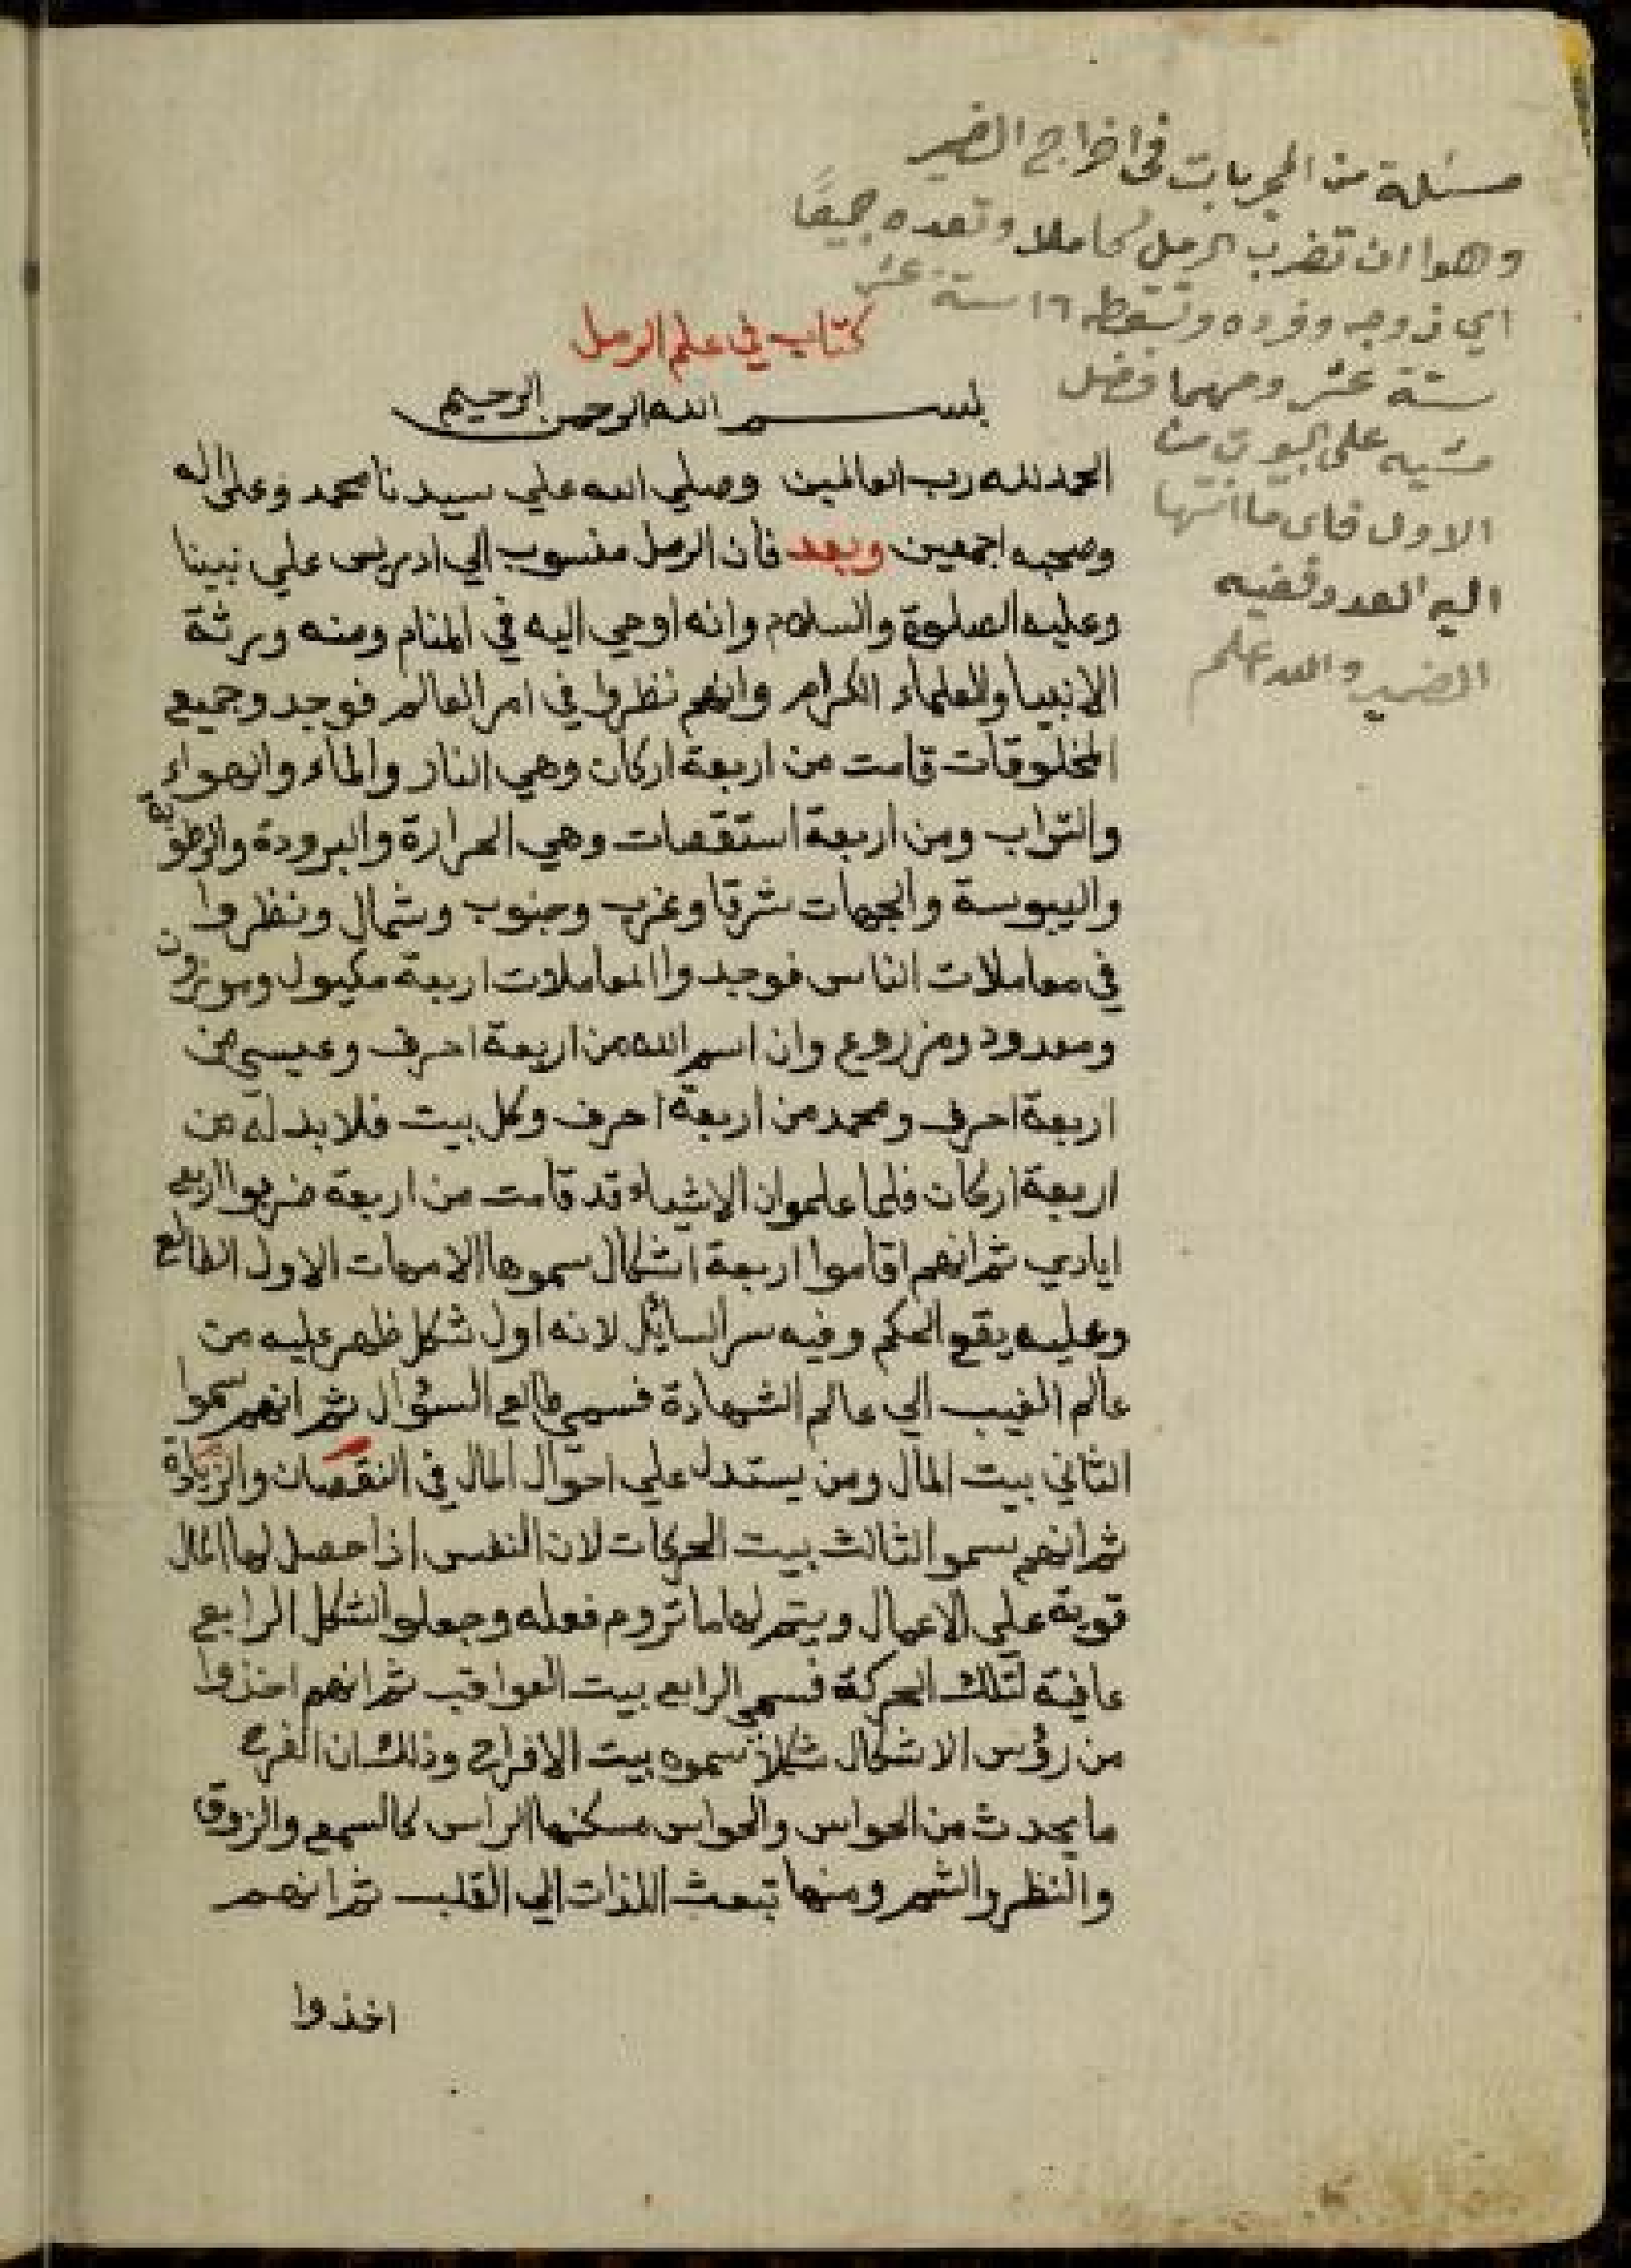 مسئلة من المجربات في اخراج الضمير
وهوا ان تضرب الرمل كاملا وتعده جميعًا
اي زوجه وفرده وتسقطه ١٦ ستة عشر
ستة عشر ومهما فضل
مشيه على البيوت من
الاول فاى ما انتها
اليه العدد ففيه
الضمير والله اعلم
كتاب في علم الرمل
بسم الله الرحمن الرحيم
الحمد لله رب العالمين وصلي الله علي سيدنا محمد وعلى اله
وصحبه اجمعين وبعد فان الرمل منسوب الي ادريس علي نبينا
وعليه الصلوة والسلام وانه اوحي اليه في المنام ومنه ورثة
الانبيا والعلماء الكرام وانهم نظروا في امر العالم فوجدو جميع
المخلوقات قامت من اربعة اركان وهي النار والماء والهواء
والتراب ومن اربعة استقصات وهي الحرارة والبرودة والرطوبة
واليبوسة والجهات شرقا وغرب وجنوب وشمال ونظروا
في معاملات الناس فوجدوا المعاملات اربعة مكيول وموزون
ومعدود ومزروع وان اسم الله من اربعة احرف وعيسي من
اربعة احرف ومحمد من اربعة احرف وكل بيت فلا بد له من
اربعة اركان فلما علموا ان الاشياء قد قامت من اربعة ضربوا اربع
ايادي ثم انهم اقاموا اربعة اشكال سموها الامهات الاول الطالع
وعليه يقع الحكم وفيه سر السائل لانه اول شكل ظهر عليه من
عالم الغيب الي عالم الشهادة فسمي طالع السؤال ثم انهم سموا
الثاني بيت المال ومن يستدل علي احوال المال في النقصان والزيادة
ثم انهم سمو الثالث بيت الحركات لان النفس اذا حصل لها المال
قوية علي الاعمال ويتم لها ما تروم فعله وجعلوا الشكل الرابع
عافية لتلك الحركة فسمي الرابع بيت العواقب ثم انهم اخذوا
من رؤس الاشكال شكلا سموه بيت الافراح وذلك ان الفرح
ما يحدث من الحواس والحواس مسكنها الراس كالسمع والزوق
والنظر والشم ومنها تبعث اللذات الي القلب ثم انهم
اخذوا